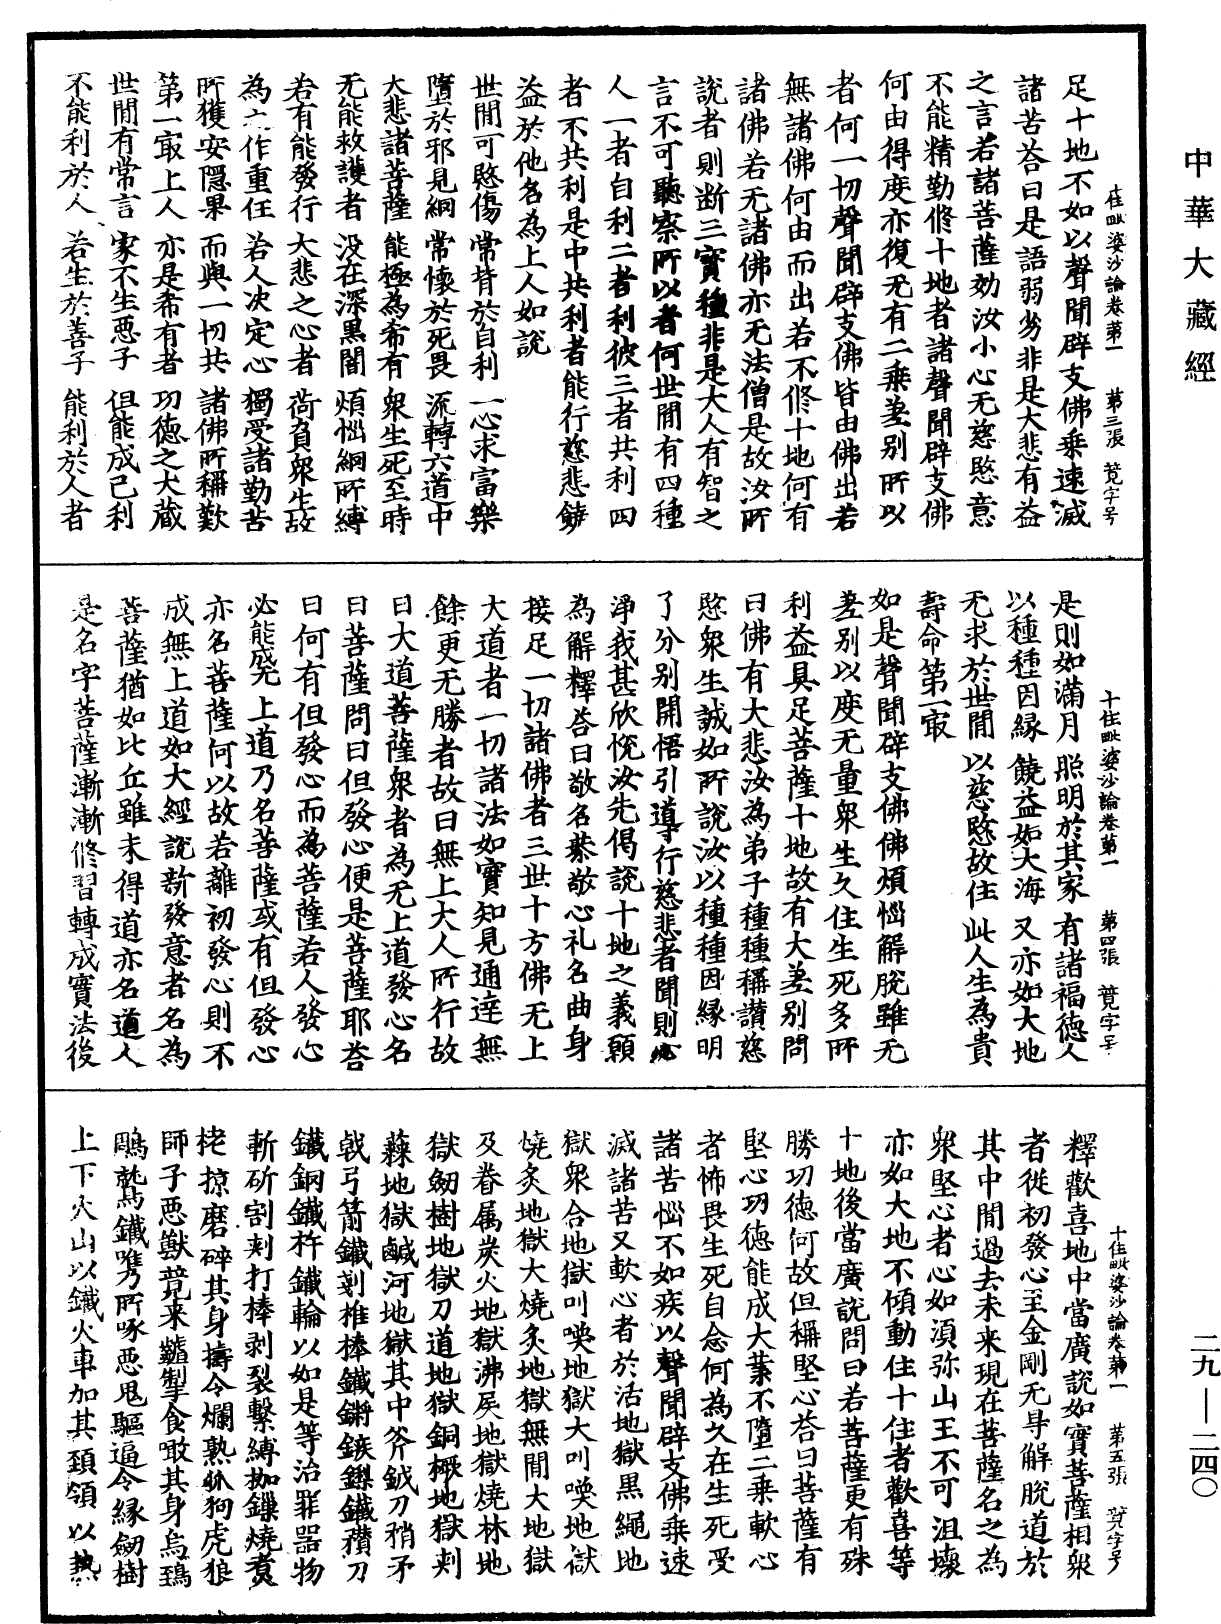 中華大藏經
住毗婆沙論卷第一 第三張 竟字号
足十地不如以聲聞辟支佛乘速滅
諸苦荅曰是語弱劣非是大悲有益
之言若諸菩薩効汝小心无慈愍意
不能精勤修十地者諸聲聞辟支佛
何由得度亦復无有二乘差别所以
者何一切聲聞辟支佛皆由佛出若
無諸佛何由而出若不修十地何有
諸佛若无諸佛亦无法僧是故汝所
說者則断三寶種非是大人有智之
言不可聽察所以者何世閒有四種
人一者自利二者利彼三者共利四
者不共利是中共利者能行慈悲饒
益於他名為上人如說
世閒可愍傷 常背於自利 一心求富樂
墮於邪見網 常懷於死畏 流轉六道中
大悲諸菩薩 能極為希有 衆生死至時
无能救護者 没在深黒闇 煩惱網所縛
若有能發行 大悲之心者 荷負衆生故
為之作重任 若人决定心 獨受諸勤苦
所獲安隱果 而與一切共 諸佛所稱歎
第一㝡上人 亦是希有者 功德之大藏
世閒有常言 家不生悪子 但能成己利
不能利於人 若生於善子 能利於人者
十住毗婆沙論卷第一 第四張 竟字号
是則如滿月 照明於其家 有諸福德人
以種種因縁 饒益如大海 又亦如大地
无求於世閒 以慈愍故住 此人生為貴
壽命第一㝡
如是聲聞辟支佛佛煩惱解脫雖无
差别以度无量衆生久住生死多所
利益具足菩薩十地故有大差别問
曰佛有大悲汝為弟子種種稱讃慈
愍衆生誠如所說汝以種種因縁明
了分别開悟引導行慈悲者聞則心
淨我甚欣恱汝先偈說十地之義願
為解釋荅曰敬名恭敬心礼名曲身
接足一切諸佛者三世十方佛无上
大道者一切諸法如實知見通逹無
餘更无勝者故曰無上大人所行故
曰大道菩薩衆者為无上道發心名
曰菩薩問曰但發心便是菩薩耶荅
曰何有但發心而為菩薩若人發心
必能成无上道乃名菩薩或有但發心
亦名菩薩何以故若離初發心則不
成無上道如大經說新發意者名為
菩薩猶如比丘雖未得道亦名道人
是名字菩薩漸漸修習轉成實法後
十住毗婆沙論卷第一 第五張 竟字号
釋歡喜地中當廣說如實菩薩相衆
者從初發心至金剛无㝵解脫道於
其中閒過去未来現在菩薩名之為
衆堅心者心如湏弥山王不可沮壞
亦如大地不傾動住十住者歡喜等
十地後當廣說問曰若菩薩更有殊
勝功德何故但稱堅心荅曰菩薩有
堅心功德能成大業不墮二乘軟心
者怖畏生死自念何為久在生死受
諸苦惱不如疾以聲聞辟支佛乘速
滅諸苦又軟心者於活地獄黒繩地
獄衆合地獄叫喚地獄大叫喚地獄
燒炙地獄大燒炙地獄無閒大地獄
及眷属炭火地獄沸屎地獄燒林地
獄劒樹地獄刀道地獄銅橛地獄刺
𣗥地獄鹹河地獄其中斧鉞刀矟矛
戟弓箭鐵剗椎棒鐵鏘鏃鏫鐵䂎刀
鐵銅鐵杵鐵輪以如是等治罪器物
斬斫割刺打棒剥裂繫縛枷鏁燒煑
栲掠磨碎其身擣令爛熟狐狗虎狼
師子悪獸競来齸掣食噉其身烏鵄
鵰鷲鐵㭰所啄悪鬼驅逼令縁劒樹
上下火山以鐵火車加其頸領以熱
二九—二四〇